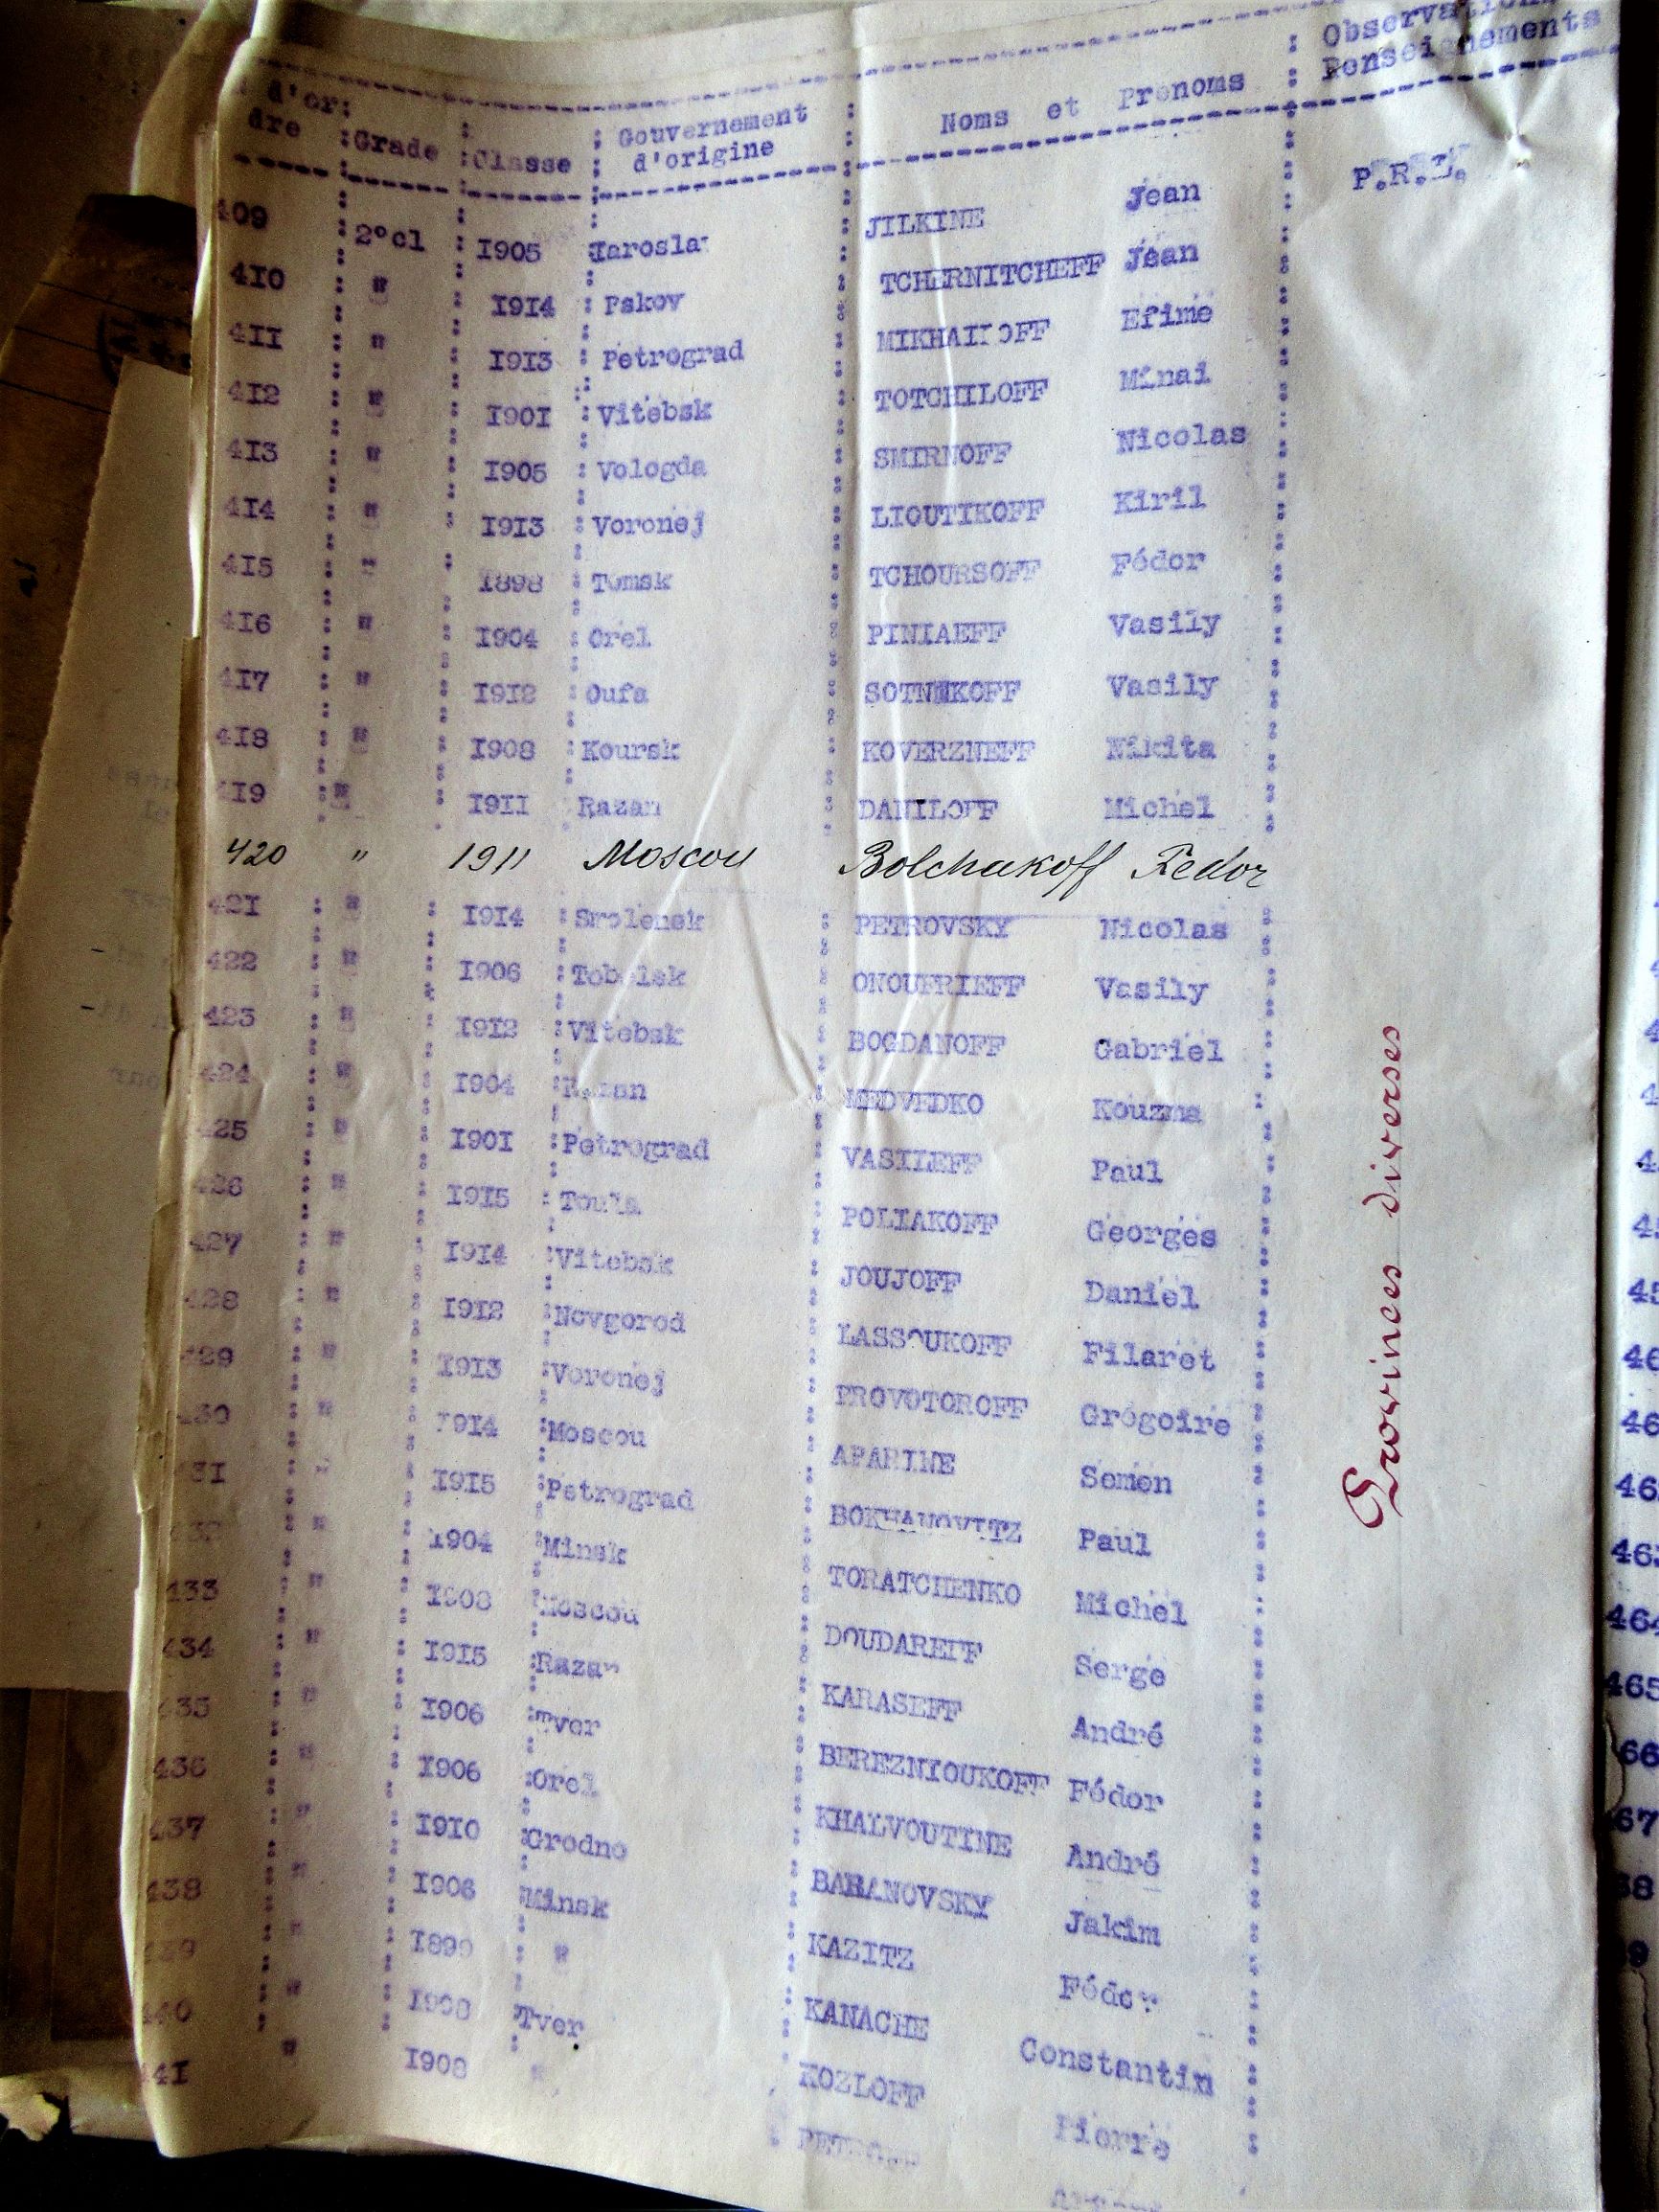 d'or: Grade Classe Gouvernement Noms et Prenoms Observations
dre d'origine Renseignements
409 2°cl 1905 Iaroslav JILKINE Jean P.R.I.
410 " 1914 Pskov TCHERNITCHEFF Jean
411 " 1913 Petrograd MIKHAILOFF Efime
412 " 1901 Vitebsk TOTCHILOFF Minai
413 " 1905 Vologda SMIRNOFF Nicolas
414 " 1913 Voronej LIOUTIKOFF Kiril
415 " 1898 Tomsk TCHOURSOFF Fédor
416 " 1904 Orel PINIAEFF Vasily
417 " 1912 Oufa SOTNIKOFF Vasily
418 " 1908 Koursk KOVERZNEFF Nikita
419 " 1911 Razan DANILOFF Michel
420 " 1911 Moscou Bolchakoff Fedor
421 " 1914 Smolensk PETROVSKY Nicolas
422 " 1906 Tobolsk ONOUFRIEFF Vasily
423 " 1912 Vitebsk BOGDANOFF Gabriel
424 " 1904 Razan MEDVEDKO Kouzma
425 " 1901 Petrograd VASILEFF Paul
426 " 1915 Toula POLIAKOFF Georges
427 " 1914 Vitebsk JOUJOFF Daniel
428 " 1912 Novgorod LASSOUKOFF Filaret
429 " 1913 Voronej PROVOTOROFF Grégoire
430 " 1914 Moscou APARINE Semen
431 " 1915 Petrograd BOKHANOVITZ Paul
432 " 1904 Minsk TORATCHENKO Michel
433 " 1908 Moscou DOUDAREFF Serge
434 " 1915 Razan KARASEFF André
435 " 1906 Tver BEREZNIOUKOFF Fédor
436 " 1906 Orel KHALVOUTINE André
437 " 1910 Grodno BARANOVSKY Jakim
438 " 1906 Minsk KAZITZ Fédor
439 " 1899 " KANACHE Constantin
440 " 1908 Tver KOZLOFF Pierre
441 " 1908 "
Provinces diverses